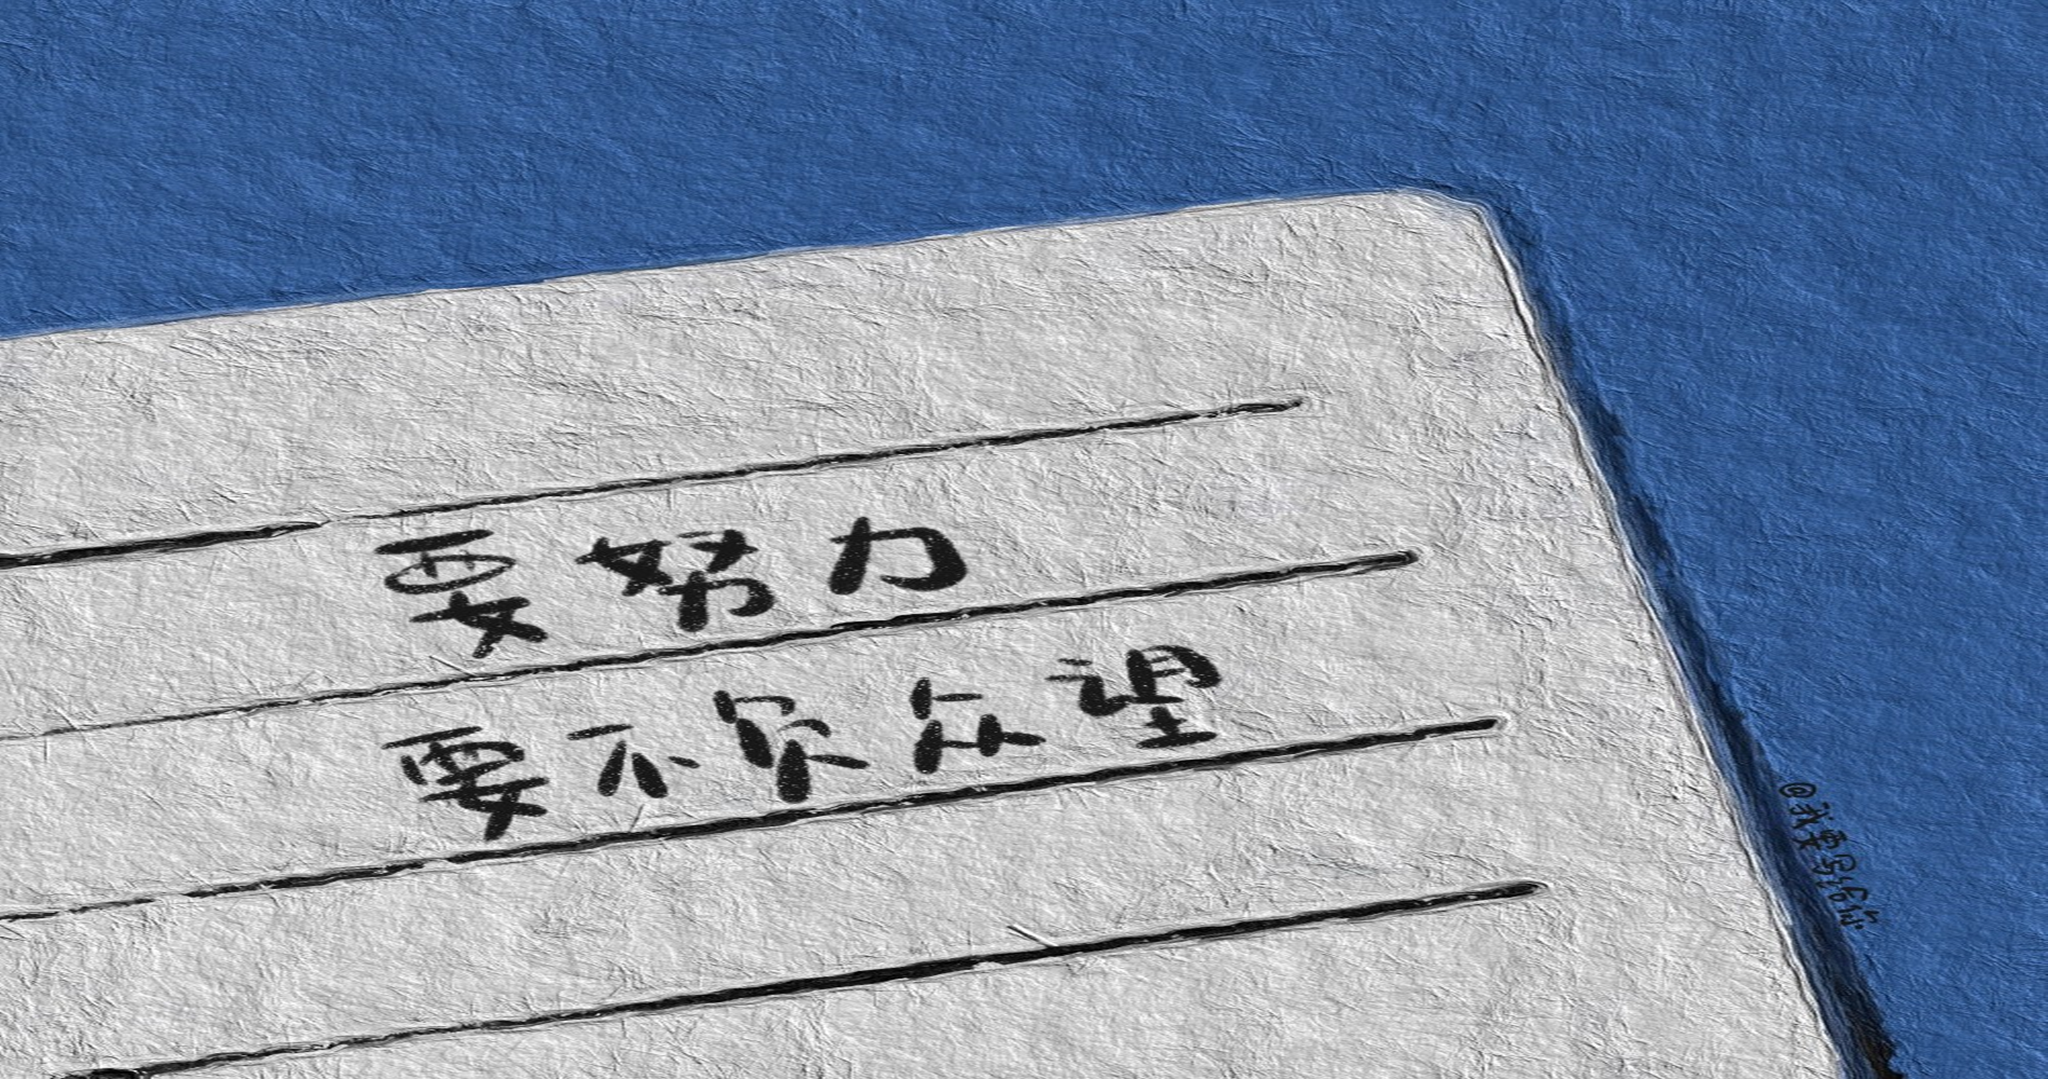 要努力
要不负众望
@我要写给你